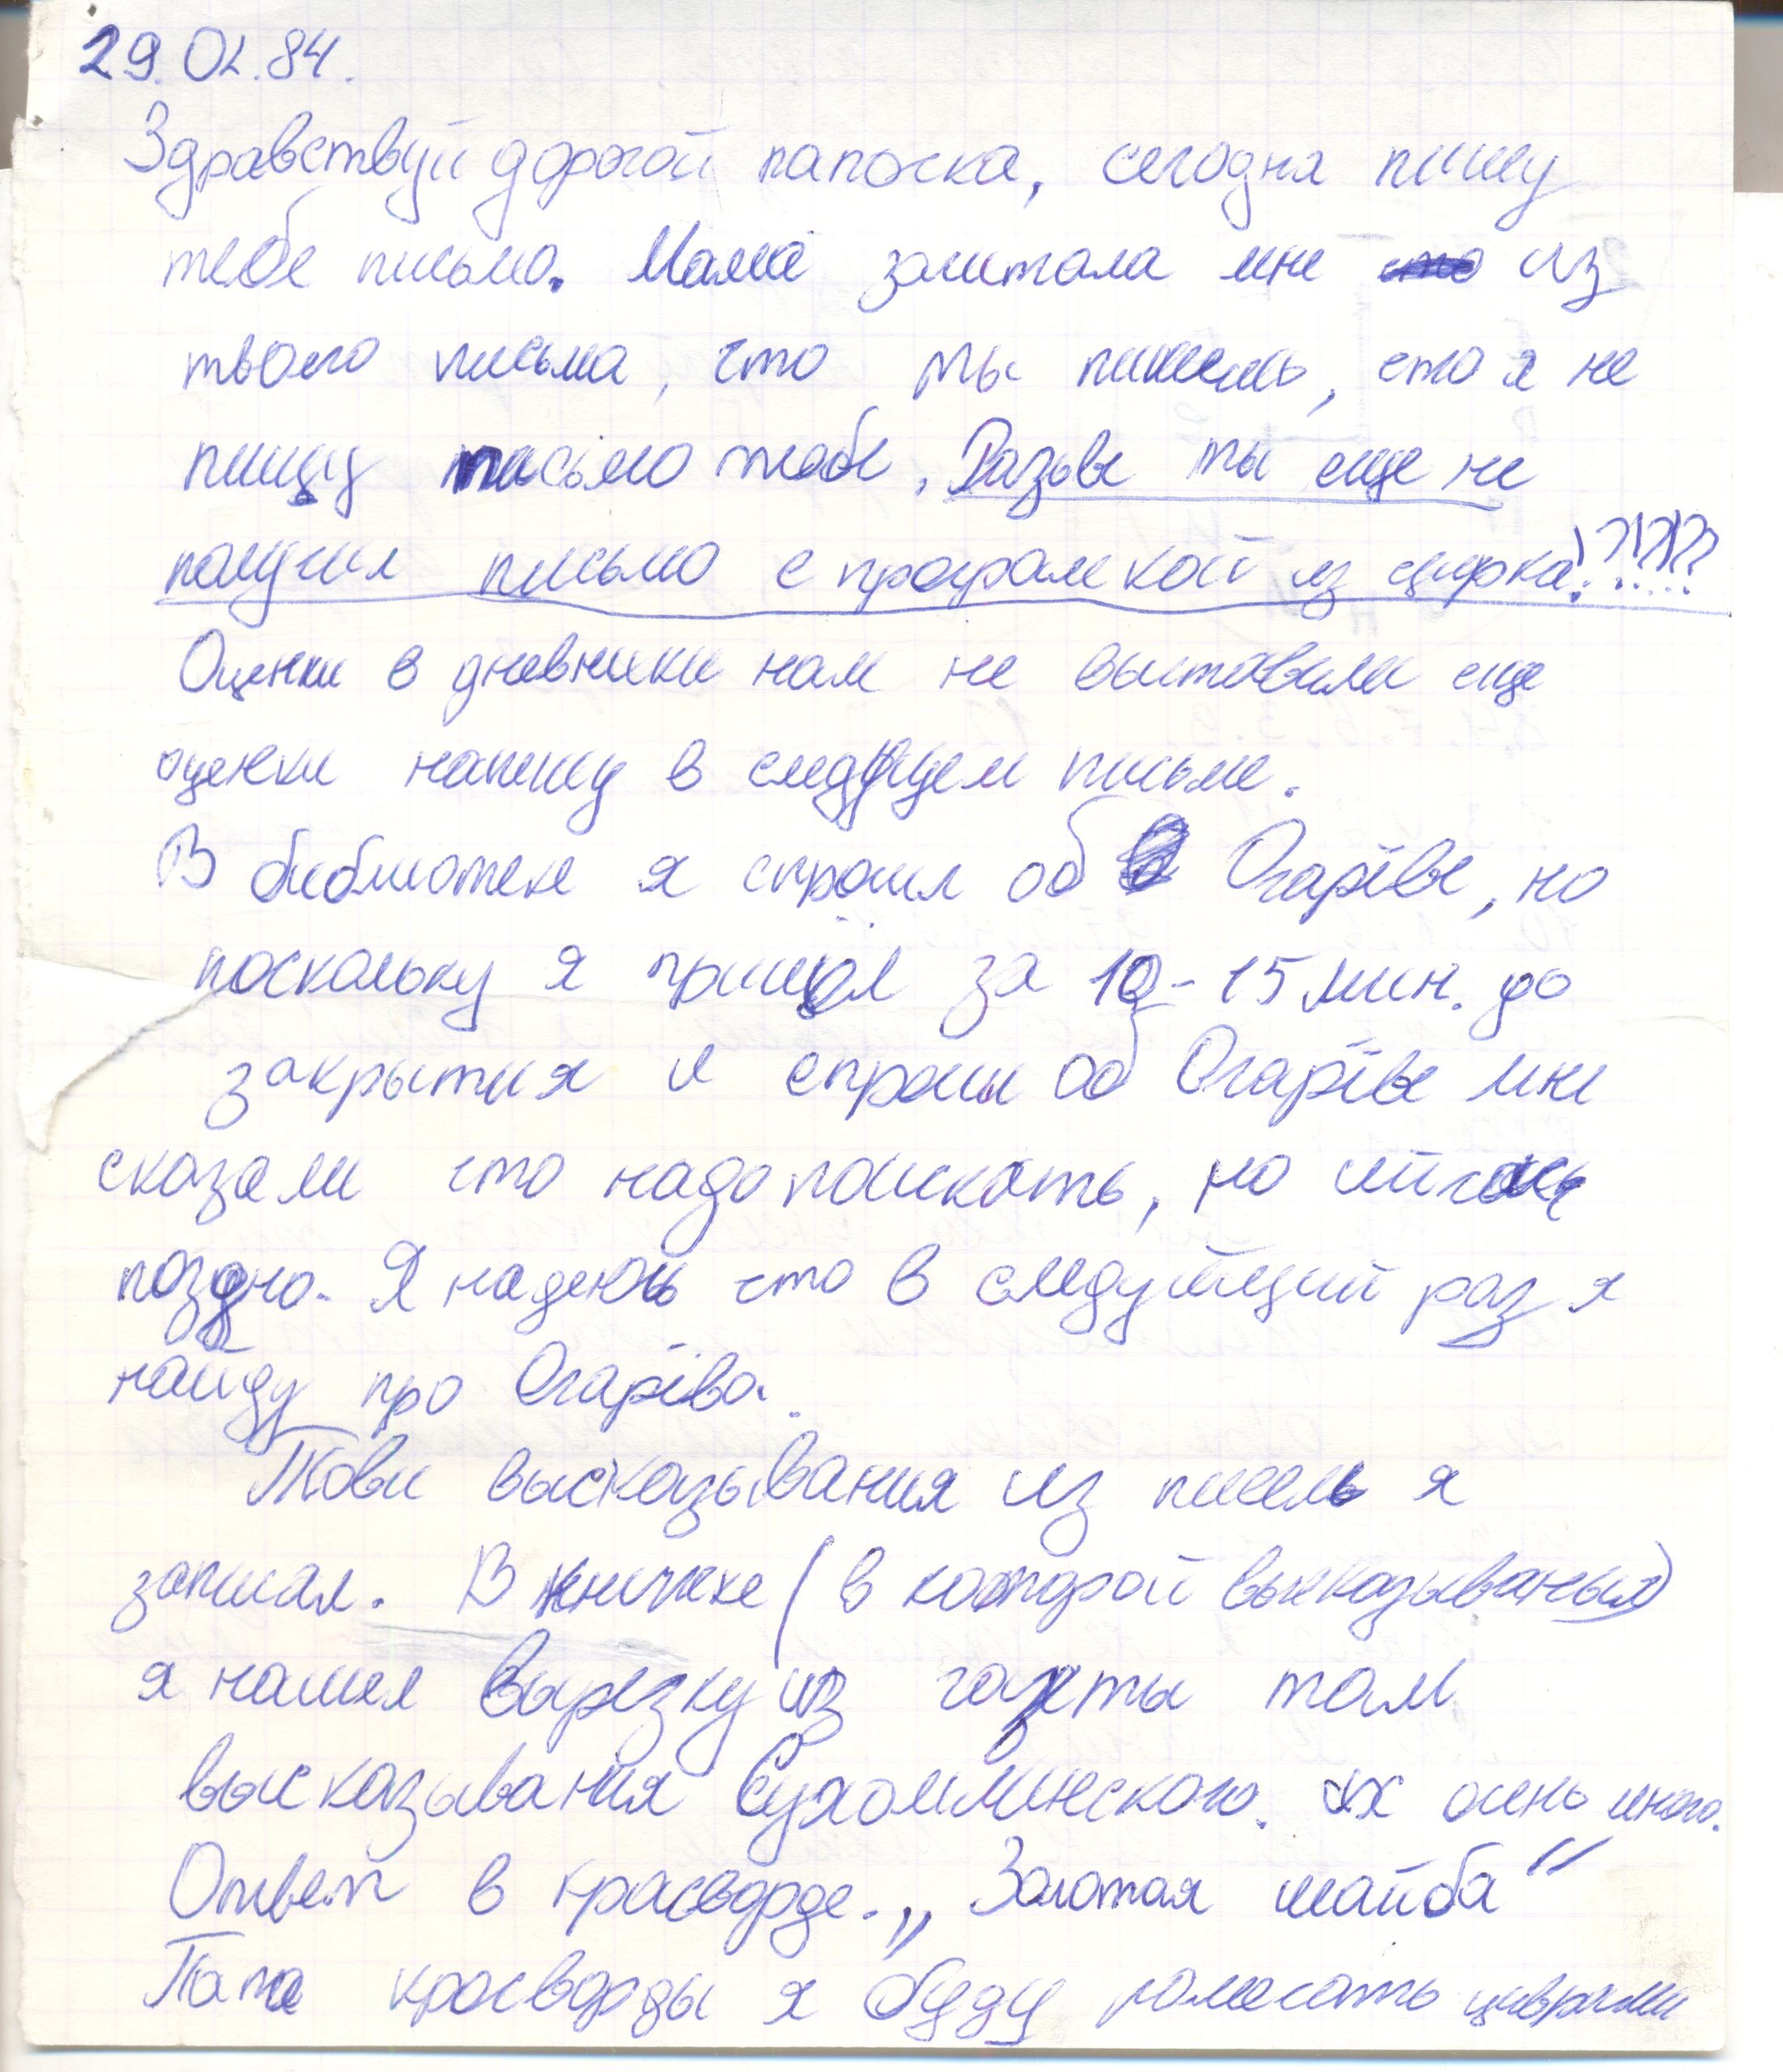 29.02.84.
Здравствуй дорогой папочка, сегодня пишу
тебе письмо. Мама зачитала мне из
твоего письма, что ты пишешь, что я не
пишу письмо тебе. Разьве ты еще не
получил письмо с програмкой из цирка!?!?!??
Оценки в дневники нам не выставили еще
оценки напишу в следующем письме.
В библиотеке я спросил об Огарёве, но
поскольку я пришёл за 10-15 мин. до
закрытия и спросил об Огарёве мне
сказали что надо поискать, но сейчас
поздно. Я надеюсь что в следующий раз я
найду про Огарёва.
Твои высказывания из писемь я
записал. В книжке (в которой высказыванья)
я нашел вырезку из газеты там
высказывания Сухомлинского. их очень много.
Ответ в красворде. „Золотая шайба"
Папа красворды я буду помечать цифрами